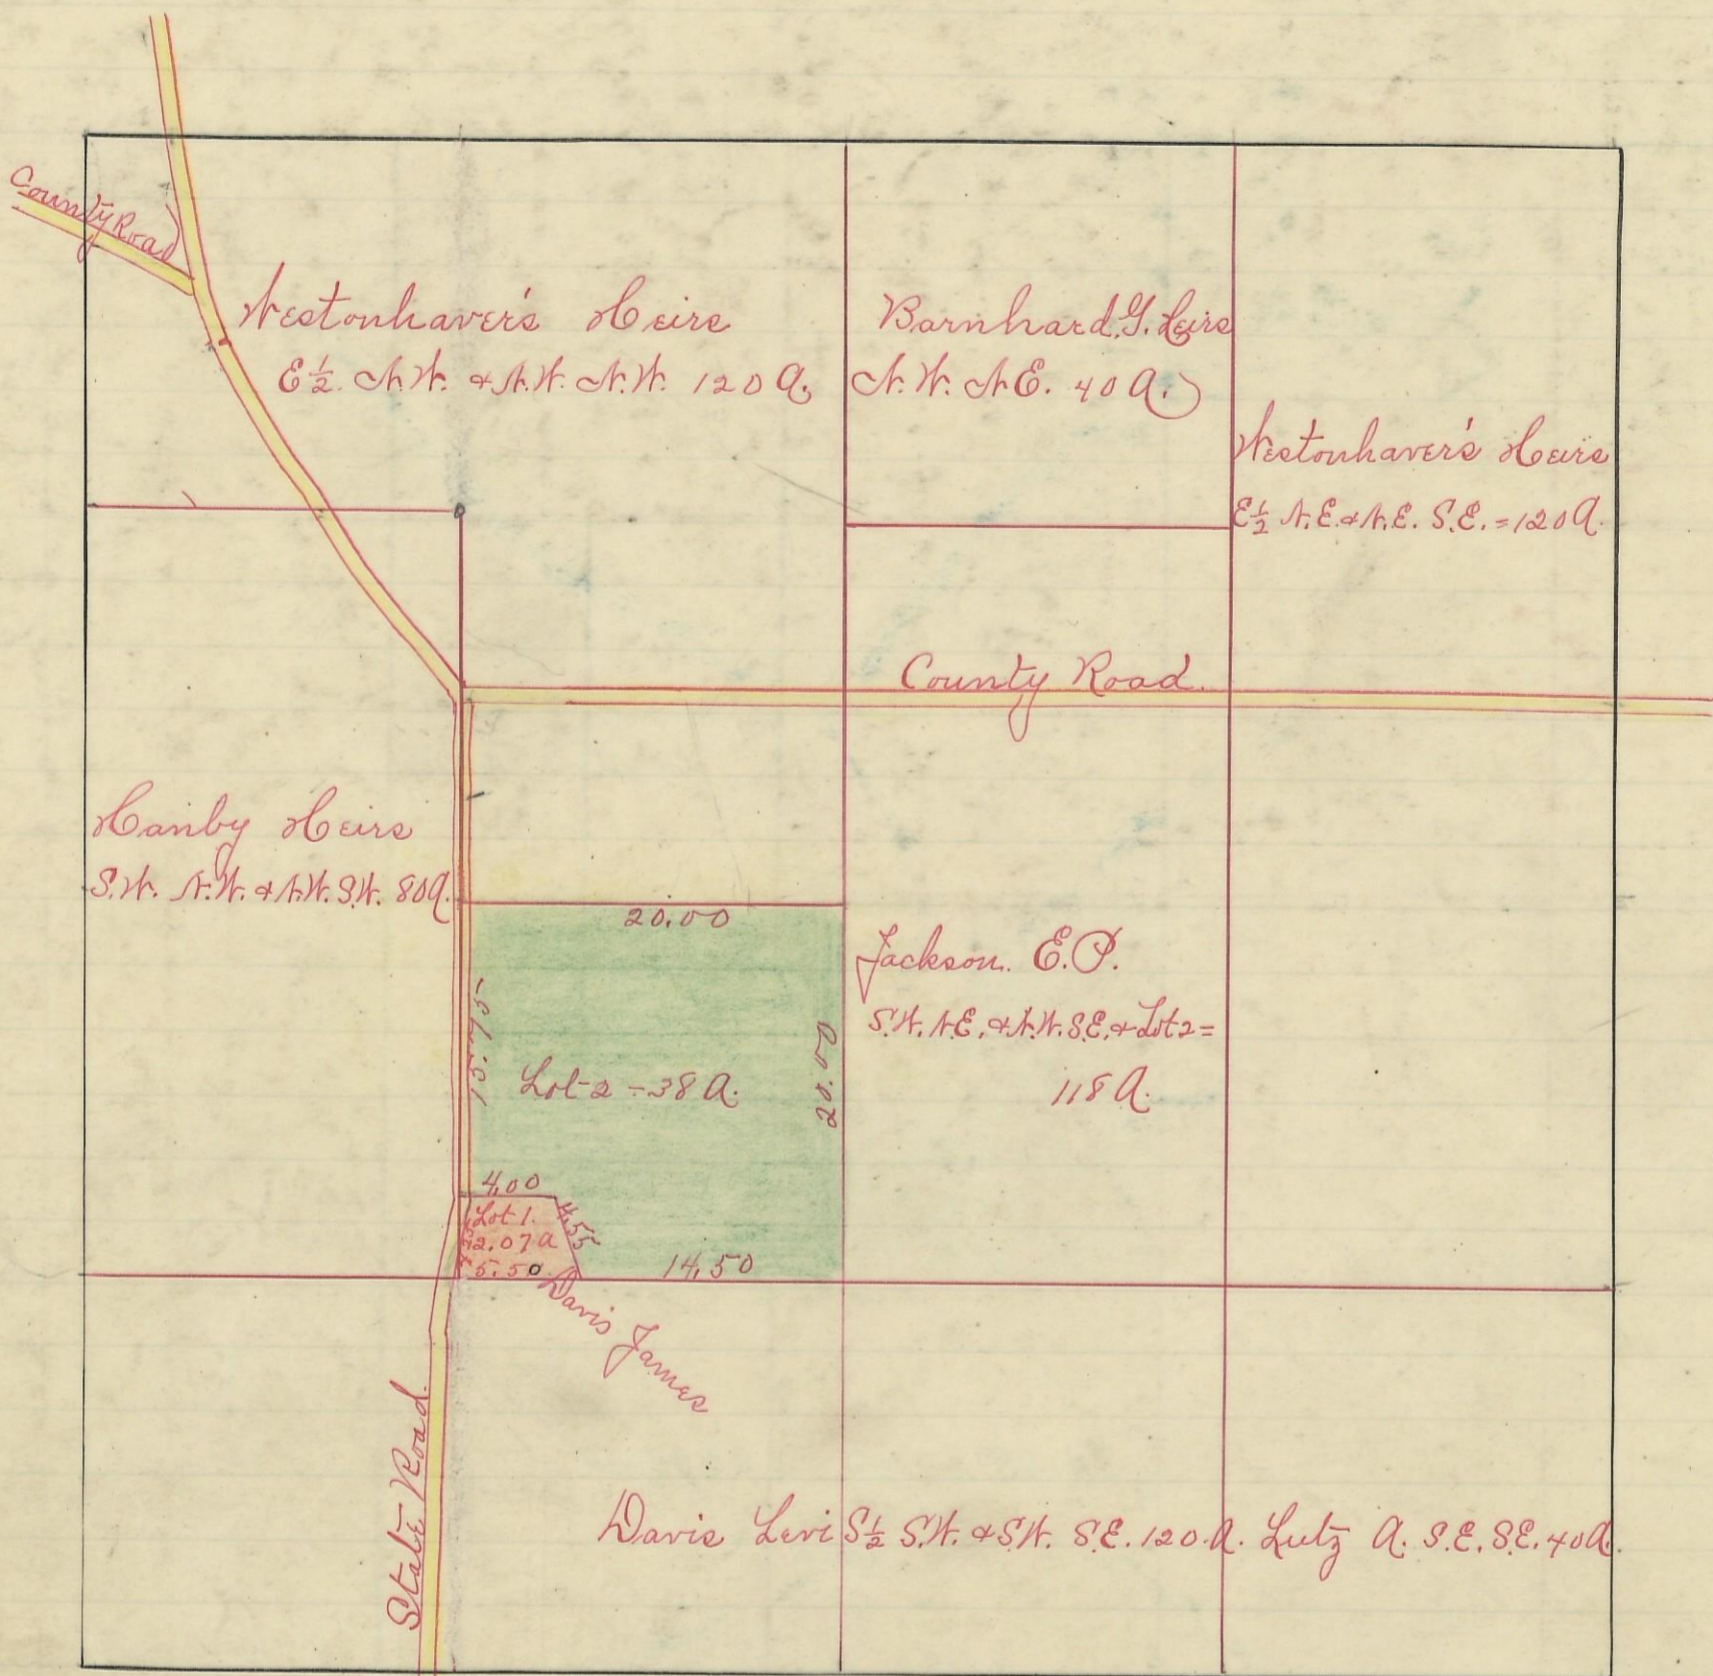 County Road
Westonhaver's Heirs
E½. N.W. & N.W. N.W. 120 A.
Barnhard. G. Heirs
N.W. N.E. 40 A.
Westonhaver's Heirs
E.½ N.E. & N.E. S.E. = 120 A.
County Road.
Hanby Heirs
S.W. N.W. & N.W. S.W. 80 A.
20.00
15.75
Lot 2 - 38 A.
20.00
Jackson. E.P.
S.W. N.E. & N.W. S.E. & Lot 2 =
118 A.
4.00
Lot 1.
2.07 A
5.50
4.55
14.50
Davis James
State Road.
Davis Levi S½ S.W. & S.W. S.E. 120 A.
Lutz A. S.E. S.E. 40 A.